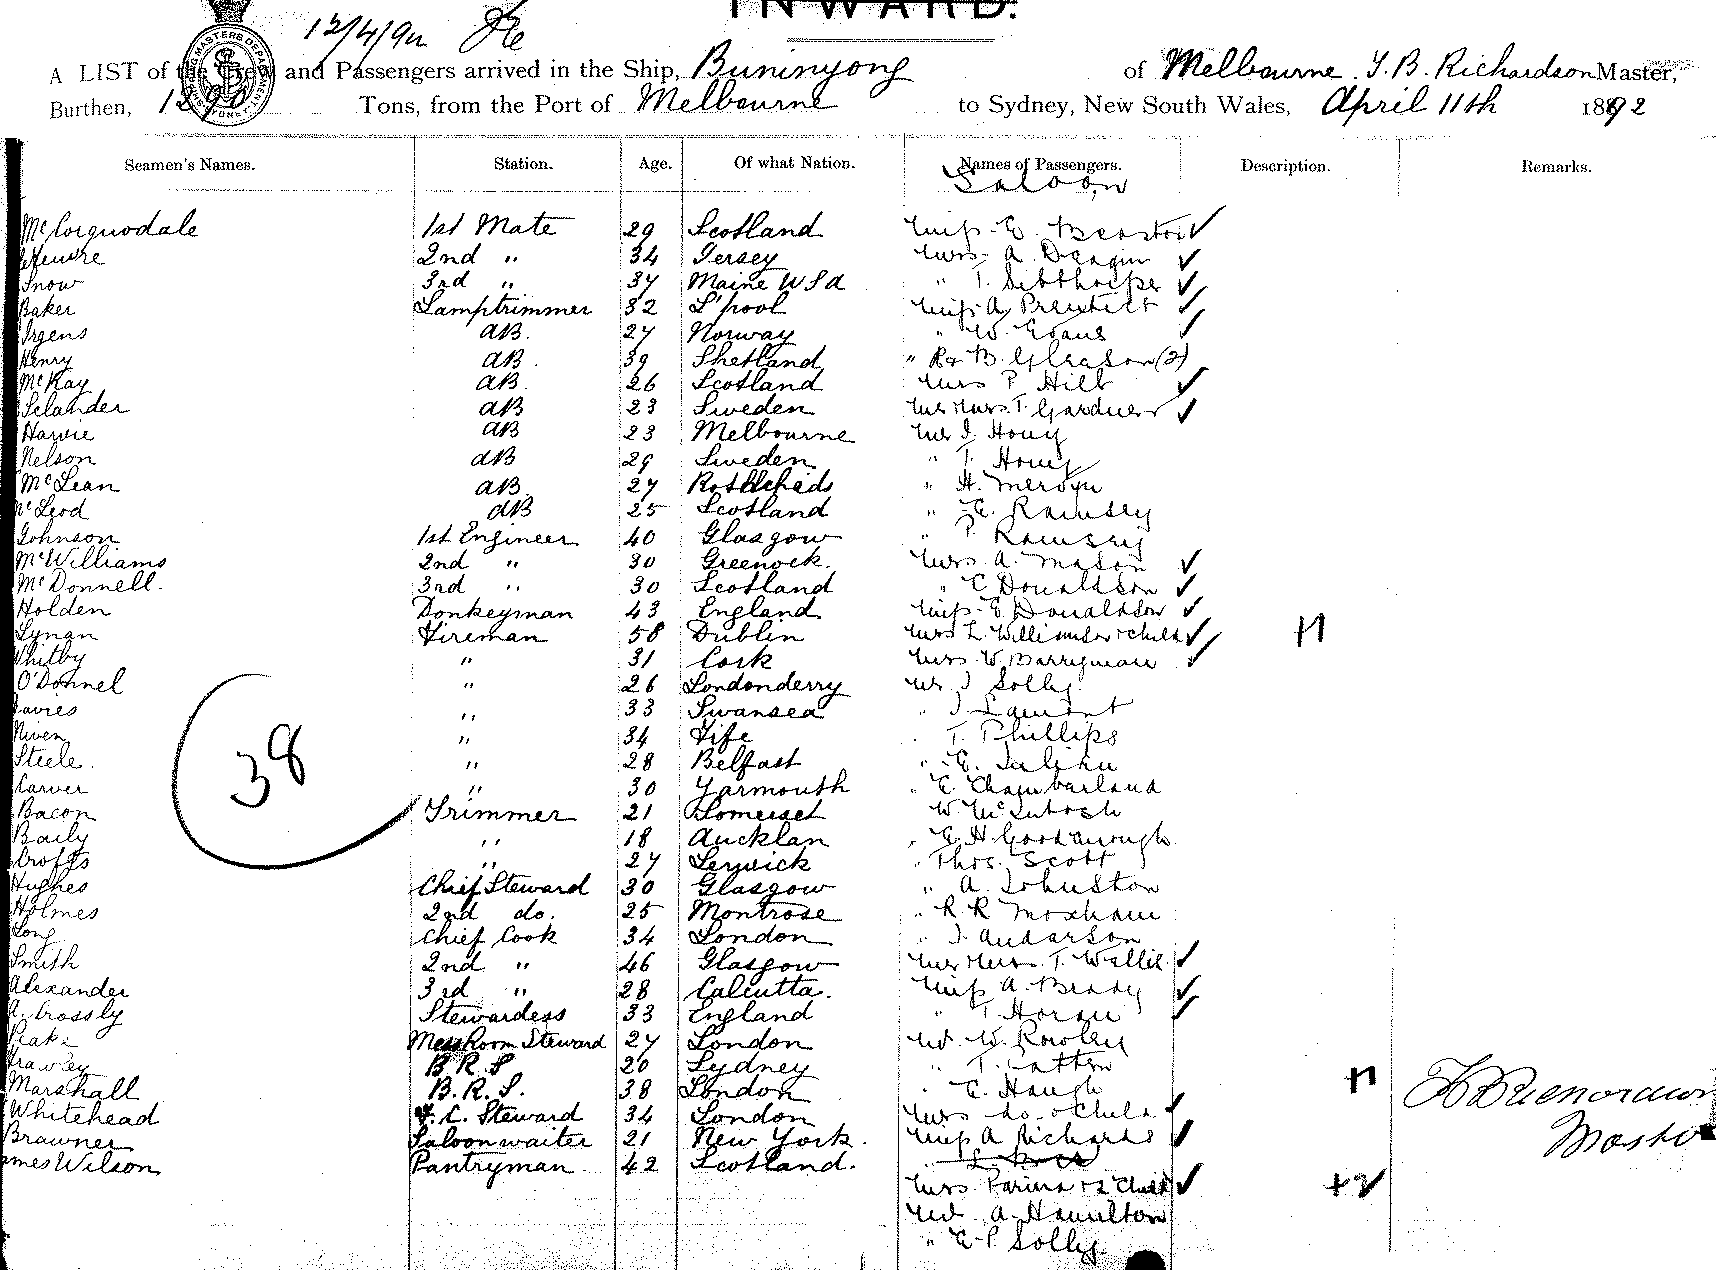 INWARD.
12/4/92
A LIST of the Crew and Passengers arrived in the Ship, Buninyong of Melbourne. T. B. Richardson Master,
Burthen, 1290 Tons, from the Port of Melbourne to Sydney, New South Wales, April 11th 1892
Seamen's Names. Station. Age. Of what Nation. Names of Passengers. Description. Remarks.
Saloon
McCorquodale 1st Mate 29 Scotland Miss E.
2nd " 34 Jersey Mrs A.
Snow 3rd " 37 Maine USA " T. Sibthorpe
Baker Lamptrimmer 32 L'pool Miss A
Irgens AB. 27 Norway " W. Evans
Henry AB. 39 Shetland " R & B. Gleason (2)
McKay AB. 26 Scotland Mrs P. Hill
Selander AB 23 Sweden Mr & Mrs T. Gardner
Harvie AB 23 Melbourne Mr J. Houy
Nelson AB 29 Sweden " T. Houy
McLean AB. 27 " H. Mervyn
McLeod AB 25 Scotland " E. Ramsey
Johnson 1st Engineer 40 Glasgow " P. Ramsey
McWilliams 2nd " 30 Greenock. Mrs A. Mason
McDonnell. 3rd " 30 Scotland " E Donaldson
Holden Donkeyman 43 England Miss E Donaldson
Lynan Fireman 58 Dublin Mrs L. Williamson & child +1
Whitby " 31 Cork Mrs W. Barryman
O'Donnel " 26 Londonderry Mr J Solly
Davies " 33 Swansea " J. Lamont
Niven " 34 Fife " T. Phillips
Steele. " 28 Belfast " E.
Carver " 30 Yarmouth " E Chamberland
38
Bacon Trimmer 21 Somerset W McIntosh
Baily " 18 Aucklan " E. H. Goodenough
Crofts " 27 Lerwick " Thos. Scott
Hughes Chief Steward 30 Glasgow " A. Johnston
Holmes 2nd do. 25 Montrose " R R Moxham
Long Chief Cook 34 London " J. Anderson
Smith 2nd " 46 Glasgow Mr & Mrs T. Wallis
Alexander 3rd " 28 Calcutta. Miss A. Brady
A. Crossly Stewardess 33 England " T. Horan
Peake Mess Room Steward 27 London Mr W. Rowley
Frawley B R S 20 Sydney " T. Catton
Marshall B. R. S. 38 London " E. Haugh +1
Whitehead F. C. Steward 34 London Mrs do. & Child
Brawner Saloon waiter 21 New York. Miss A Richards
James Wilson Pantryman 42 Scotland.
Mrs Farina & 2 Child +2
Mr A. Hamilton
" E P Solly
Master